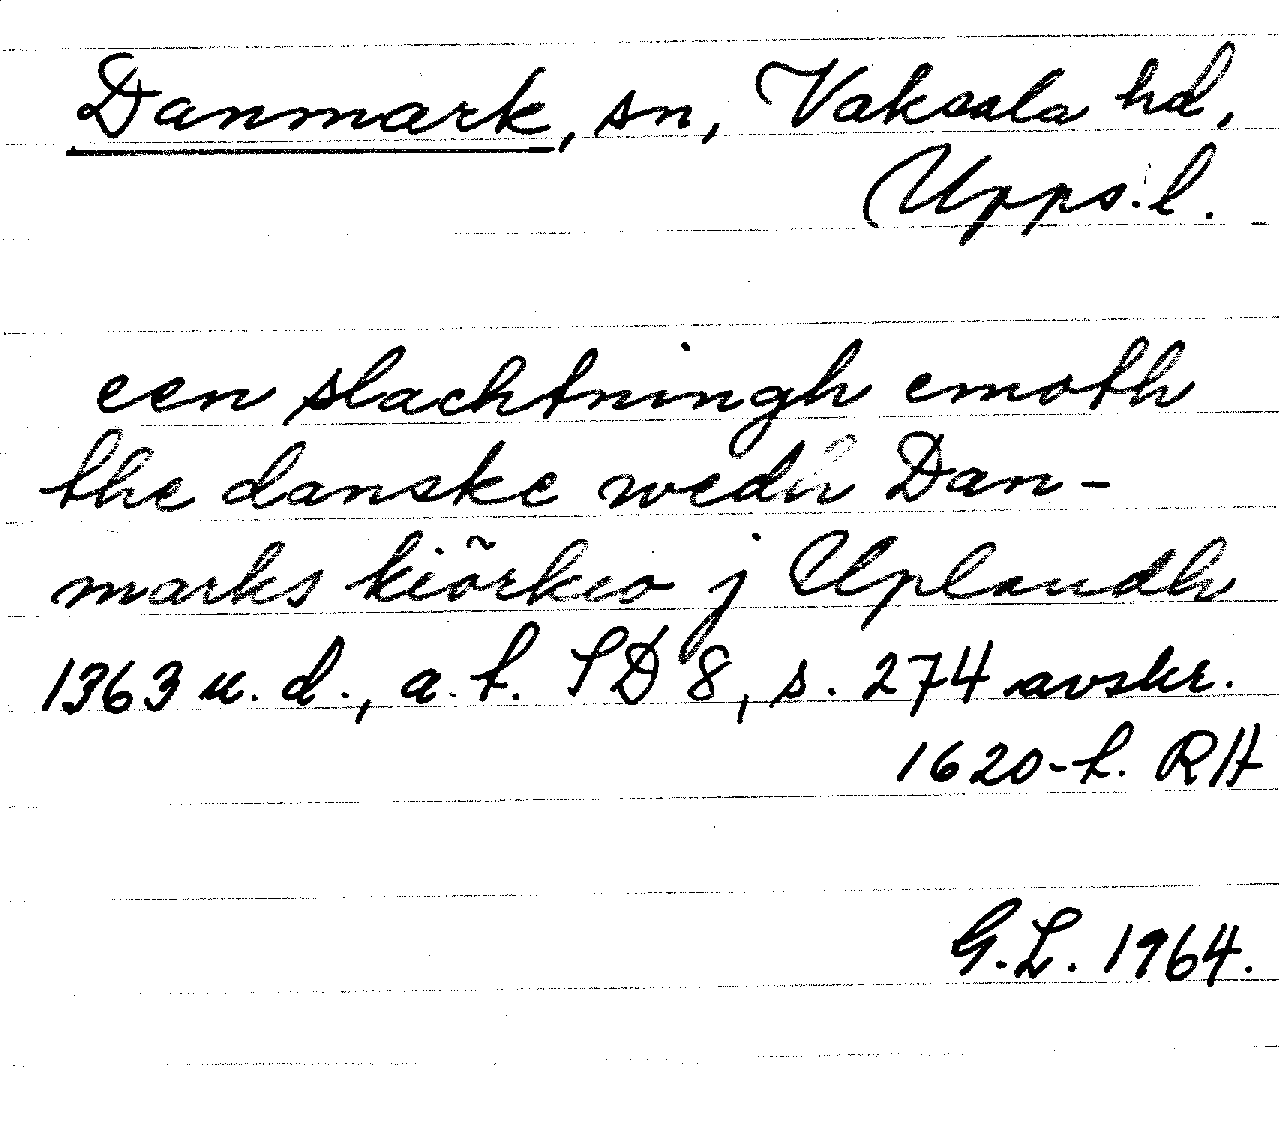 Danmark, sn, Vaksala hd,
Upps.l.
een slachtningh emoth
the danske wedh Dan-
marks kiõrkio j Uplandh
1363 u. d., a. h. SD 8, s. 274 avskr.
1620-t. RH
G.L. 1964.